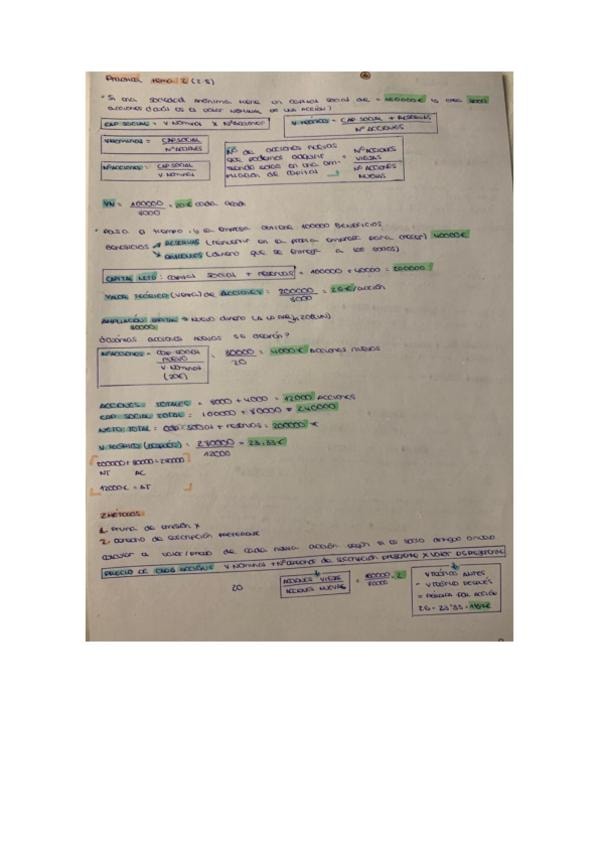 Prácticas tema 2 (2.5)
* Si una sociedad anónima tiene un capital social de = 160000€ y crea 8000
acciones ¿cuál es el valor nominal de una acción?
CAP SOCIAL = V NOMINAL X Nº ACCIONES
V TEÓRICO = CAP SOCIAL + RESERVAS
Nº ACCIONES
V NOMINAL = CAP SOCIAL
Nº ACCIONES
Nº ACCIONES = CAP SOCIAL
V NOMINAL
Nº de acciones nuevas
que podemos adquirir
siendo socio en una am-
pliación de capital
= Nº ACCIONES
VIEJAS
Nº ACCIONES
NUEVAS
VN = 160000 = 20€ cada acción
8000
* Pasa el tiempo y la empresa obtiene 100000 BENEFICIOS
BENEFICIOS RESERVAS (reinvertir en la propia empresa para crecer) 40000€
DIVIDENDOS (dinero que se entrega a los socios)
CAPITAL NETO: capital social + reservas = 160000 + 40000 = 200000
VALOR TEÓRICO (VENTA) de ACCIONES = 200000 = 25€/acción
8000
AMPLIACIÓN CAPITAL → nuevo dinero
80000
¿cuántas acciones nuevas se crearán?
Nº ACCIONES = CAP. SOCIAL NUEVO = 80000 = 4000€ Acciones nuevas
V NOMINAL 20
(20€)
ACCIONES TOTALES = 8000 + 4000 = 12000 ACCIONES
CAP SOCIAL TOTAL = 160000 + 80000 = 240000
NETO TOTAL = cap. social + reservas = 200000 €
V TEÓRICO (DESPUÉS) = 280000 = 23.33€
12000
200000 + 80000 = 280000
NT AC
12000€ = AT
2 MÉTODOS:
1. Prima de emisión X
2. Derecho de suscripción preferente
calcular el valor/precio de cada nueva acción según si es socio antiguo o nuevo
PRECIO DE CADA ACCIÓN = V NOMINAL + Nº derechos de suscripción preferente X VALOR DS PREFERENTE
20
ACCIONES VIEJAS
ACCIONES NUEVAS
= 160000 = 2
80000
V TEÓRICO ANTES
- V TEÓRICO DESPUÉS
= PÉRDIDA POR ACCIÓN
25 - 23'33 = 1'67€